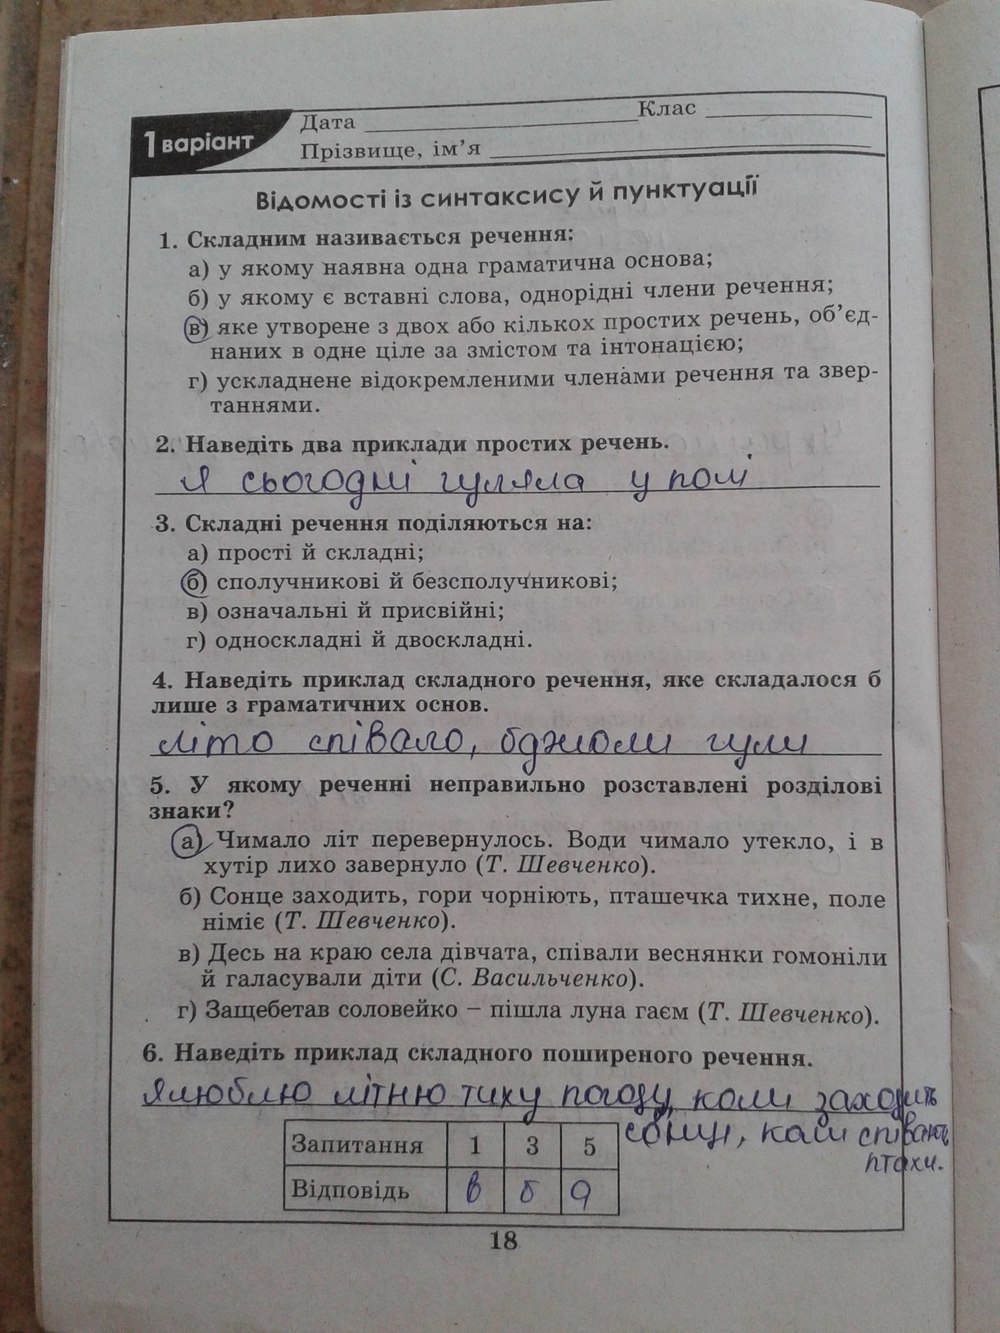 1 варіант
Дата ____ Клас ____
Прізвище, ім’я ____
Відомості із синтаксису й пунктуації
1. Складним називається речення:
а) у якому наявна одна граматична основа;
б) у якому є вставні слова, однорідні члени речення;
в) яке утворене з двох або кількох простих речень, об’єд-
наних в одне ціле за змістом та інтонацією;
г) ускладнене відокремленими членами речення та звер-
таннями.
2. Наведіть два приклади простих речень.
Я сьогодні гуляла у полі
3. Складні речення поділяються на:
а) прості й складні;
б) сполучникові й безсполучникові;
в) означальні й присвійні;
г) односкладні й двоскладні.
4. Наведіть приклад складного речення, яке складалося б
лише з граматичних основ.
літо співало, бджоли гули
5. У якому реченні неправильно розставлені розділові
знаки?
а) Чимало літ перевернулось. Води чимало утекло, і в
хутір лихо завернуло (Т. Шевченко).
б) Сонце заходить, гори чорніють, пташечка тихне, поле
німіє (Т. Шевченко).
в) Десь на краю села дівчата, співали веснянки гомоніли
й галасували діти (С. Васильченко).
г) Защебетав соловейко – пішла луна гаєм (Т. Шевченко).
6. Наведіть приклад складного поширеного речення.
Я люблю літню тиху погоду, коли заходить
сонце, коли співають
птахи.
Запитання 1 3 5
Відповідь в б а
18